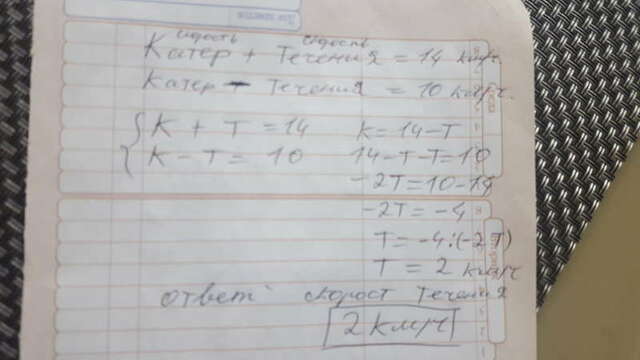 скорость скорость
Катер + Течения = 14 км/ч.
Катер - Течения = 10 км/ч.
К + Т = 14 К = 14 - Т
К - Т = 10 14 - Т - Т = 10
-2Т = 10 - 14
-2Т = -4
Т = -4 : (-2Т)
Т = 2 км/ч
ответ скорост Течения
2 км/ч